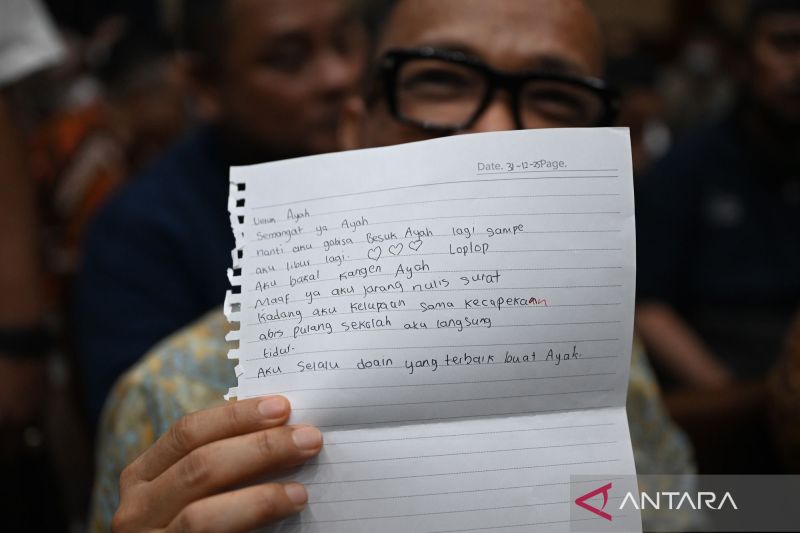 Date. 31-12-25 Page.
Untuk Ayah
Semangat ya Ayah
nanti aku gabisa Besuk Ayah lagi sampe
aku libur lagi. ♡ ♡ ♡ Loplop
Aku bakal kangen Ayah
Maaf ya aku jarang nulis surat
Kadang aku kelupaan sama kecapekaan
abis pulang sekolah aku langsung
tidur.
Aku selalu doain yang terbaik buat Ayah.
ANTARA